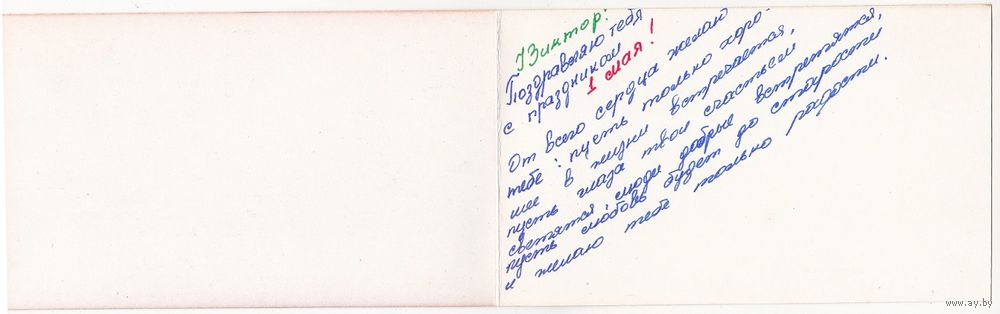 Виктор!
Поздравляю тебя
с праздником
1 мая!
От всего сердца желаю
тебе: пусть только хоро-
шее в жизни встречается,
пусть глаза твои счастьем
светятся, люди добрые встретятся,
пусть любовь будет до старости
и желаю тебе только радости.
www.ay.by